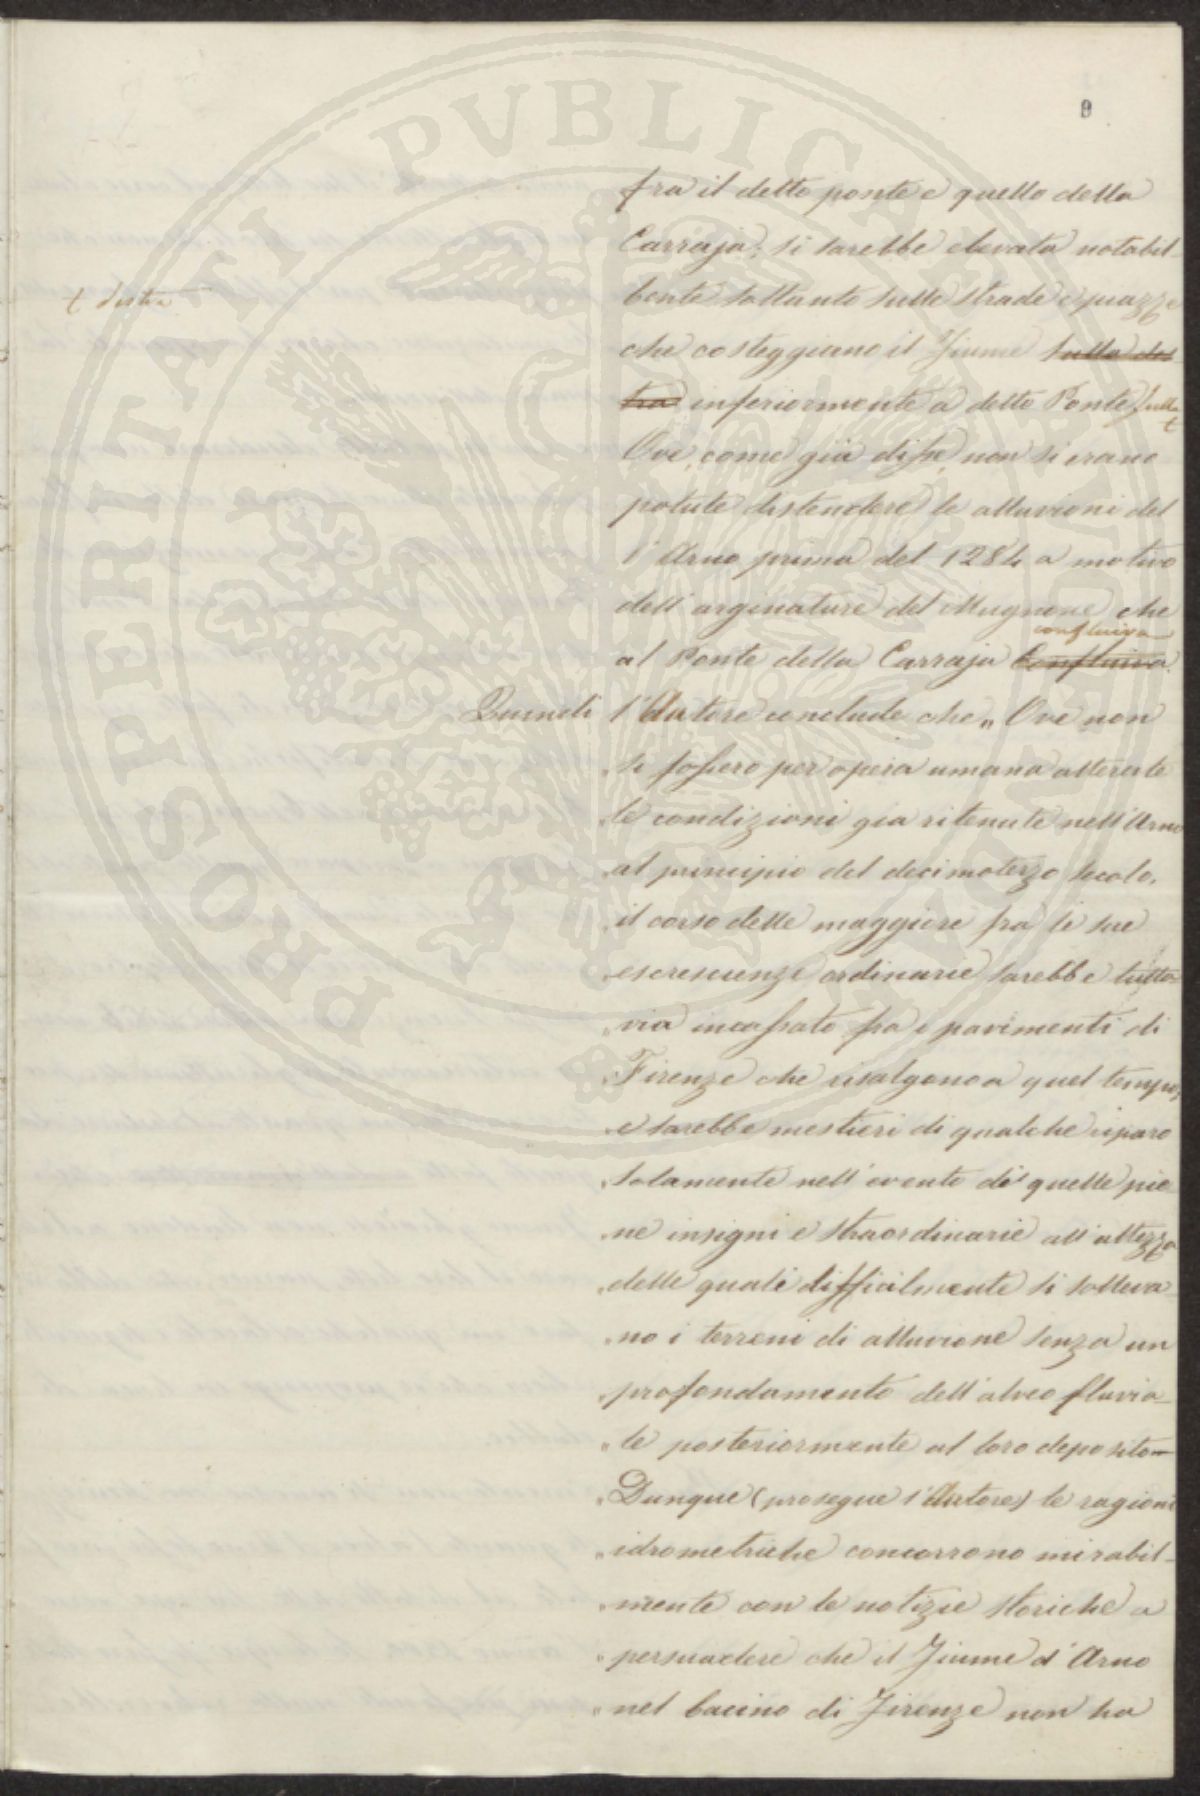 9
fra il detto ponte e quello della
Carraja; si sarebbe elevata notabil-
bente soltanto sulle strade e piazze
† destra
che costeggiano il Fiume sulla des
tra inferiormente a detto Ponte sulla †
Ove, come già disse, non si erano
potute distendere le alluvioni del
l'Arno prima del 1284 a motivo
dell'arginature del Mugnone che
confluiva
al Ponte della Carraja confluiva.
Quindi l'Autore conclude che „ Ove non
„si fossero per opera umana alterate
„le condizioni già ritenute nell'Arno
„al principio del decimoterzo secolo,
„il corso delle maggiore fra le sue
„escrescienze ordinarie sarebbe tutta-
„via incassato fra i pavimenti di
„Firenze che risalgono a quel tempo;
„e sarebbe mestieri di qualche riparo
„solamente nell'evento di quelle pie-
„ne insigni e straordinarie all'altezza
„delle quali difficilmente si solleva-
„no i terreni di alluvione senza un
„profondamento dell'alveo fluvia-
„le posteriormente al loro deposito-
„Dunque (prosegue l'Autore) le ragioni
„idrometriche concorrono mirabil-
„mente con le notizie storiche a
„persuadere che il Fiume d'Arno
„nel bacino di Firenze non ha
PROSPERITATI PVBLICAE